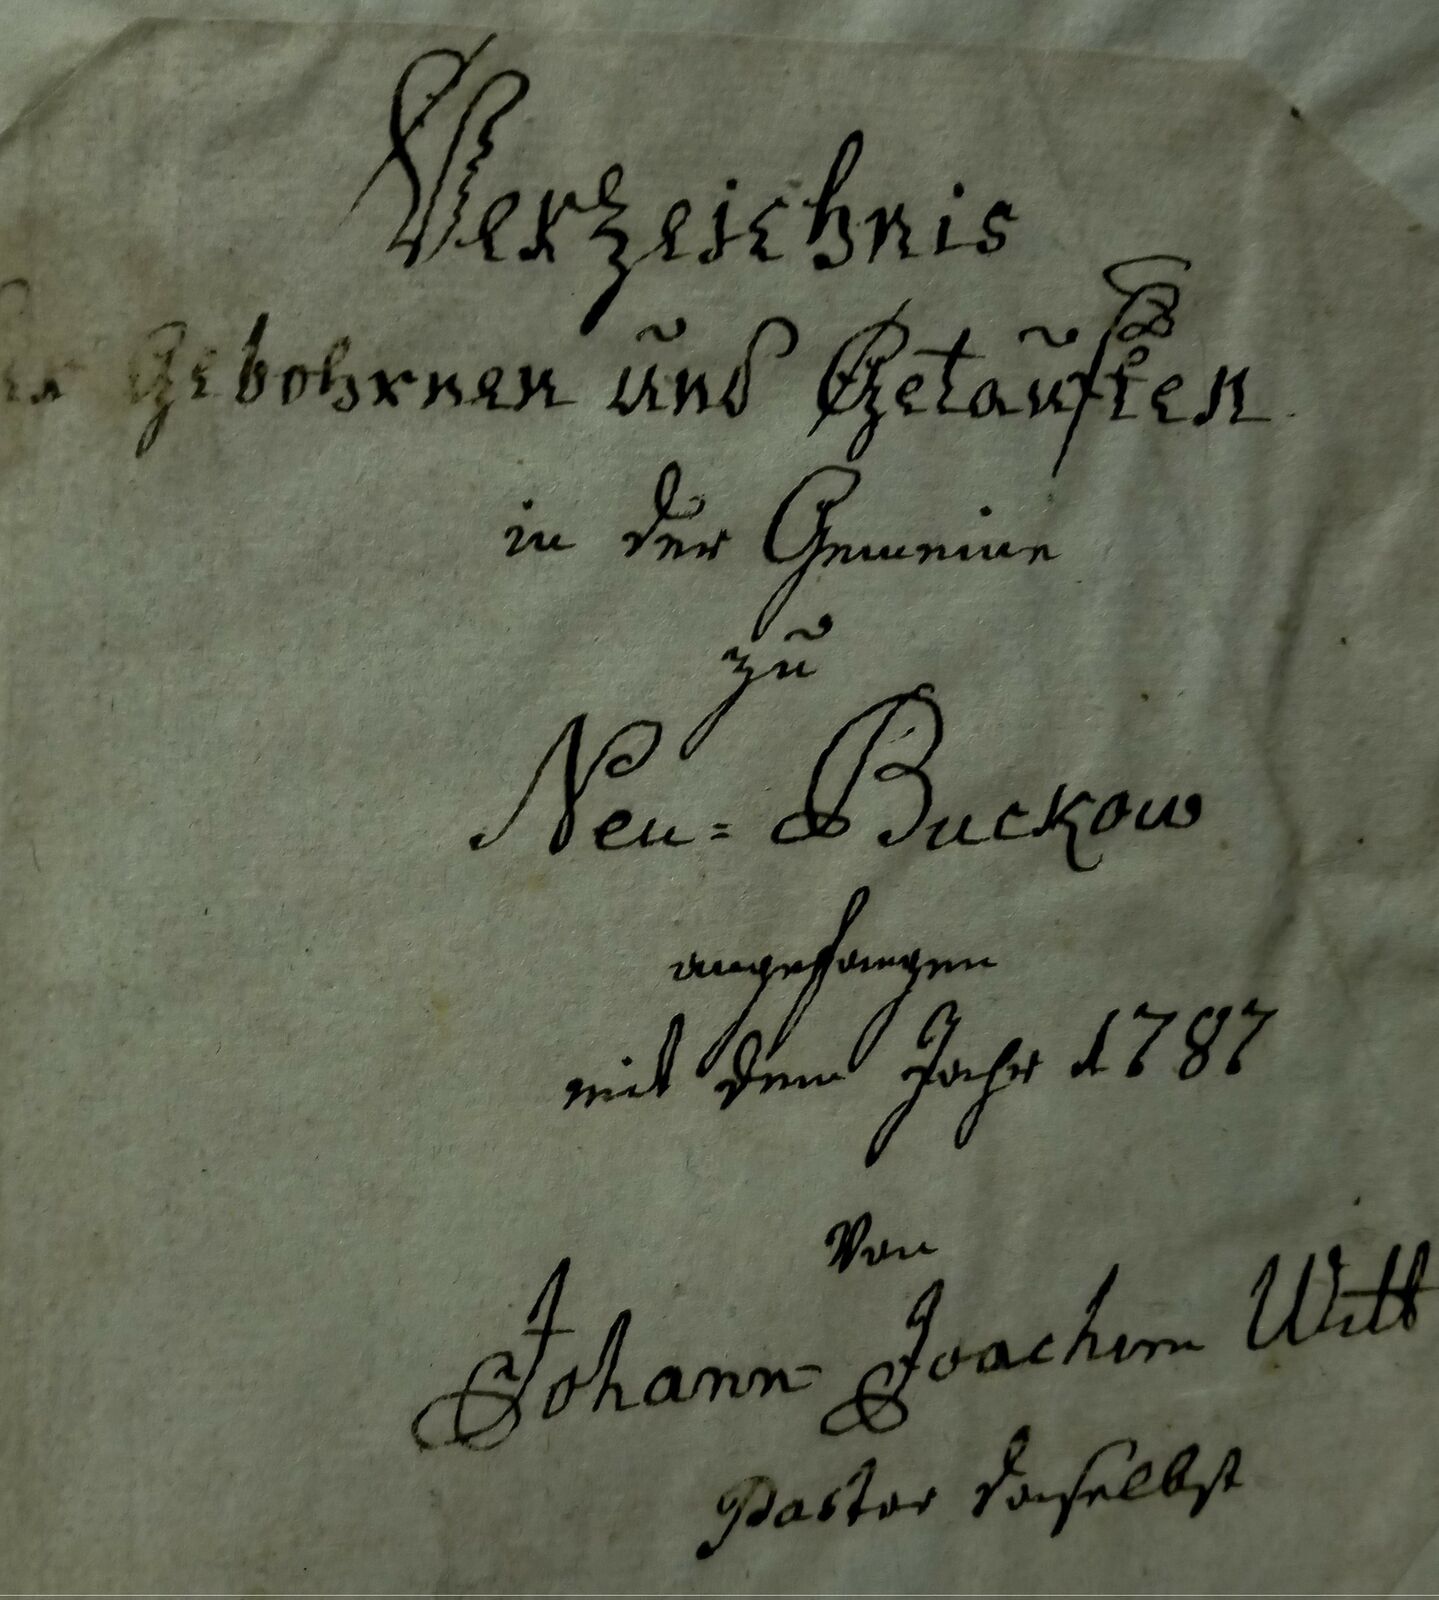 Verzeichnis
der Gebohrnen und Getauften
in der Gemeine
zu
Neu=Buckow
angefangen
mit dem Jahr 1787
von
Johann Joachim Witt
Pastor daselbst